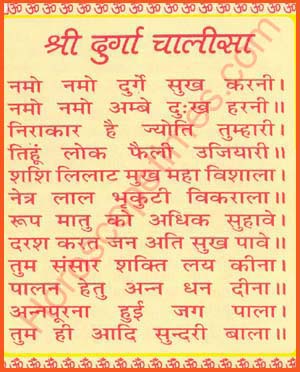 श्री दुर्गा चालीसा
नमो नमो दुर्गे सुख करनी।
नमो नमो अम्बे दुःख हरनी॥
निराकार है ज्योति तुम्हारी।
तिहूं लोक फैली उजियारी॥
शशि लिलाट मुख महा विशाला।
नेत्र लाल भृकुटी विकराला॥
रूप मातु को अधिक सुहावे।
दरश करत जन अति सुख पावे॥
तुम संसार शक्ति लय कीना।
पालन हेतु अन्न धन दीना॥
अन्नपूरना हुई जग पाला।
तुम ही आदि सुन्दरी बाला॥
Horoscopetimes.com